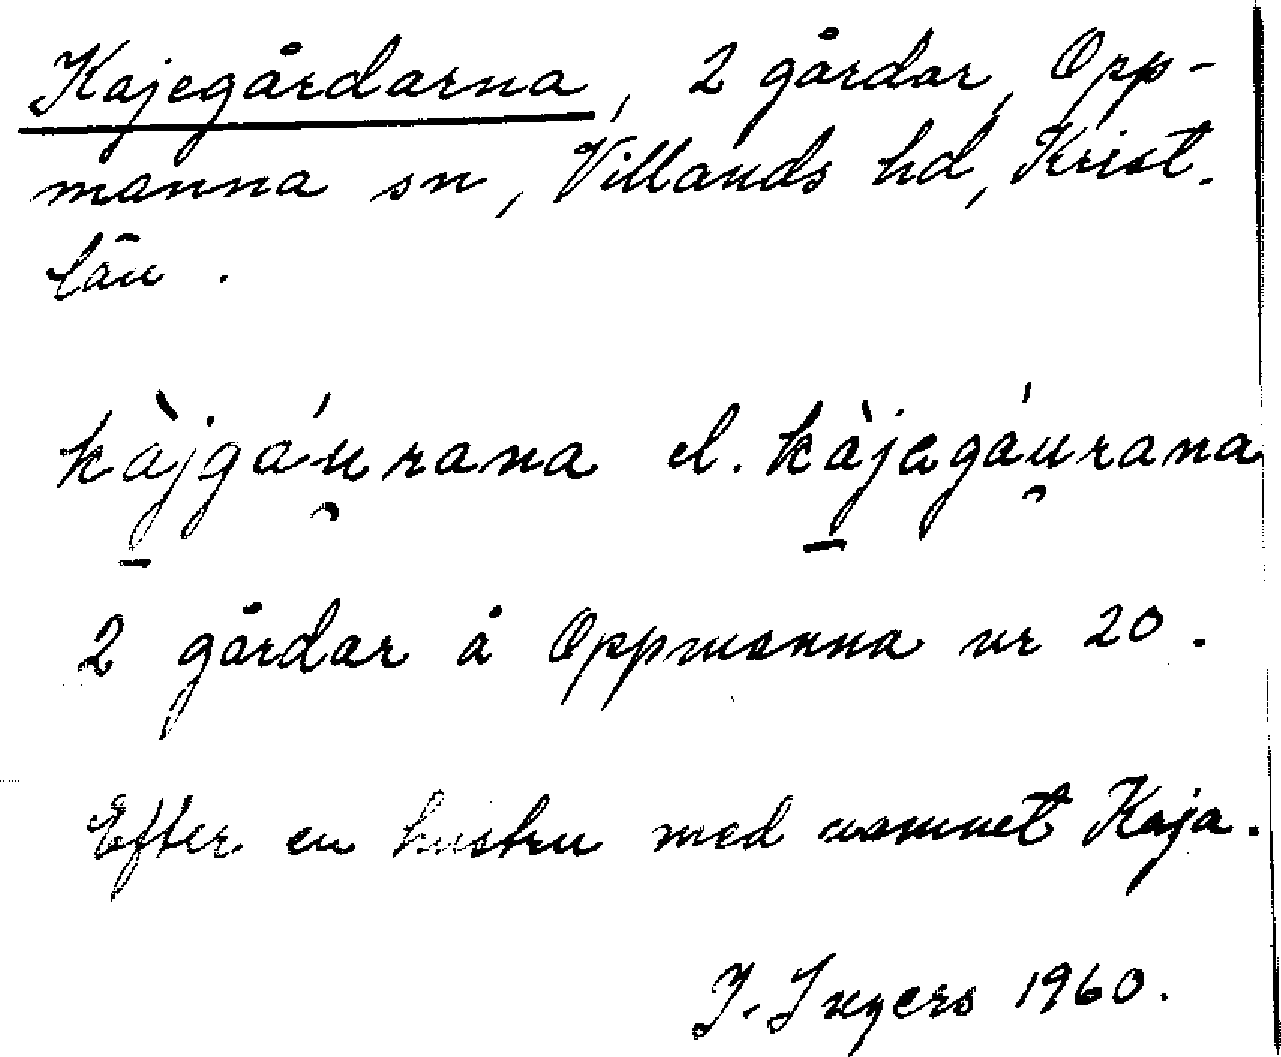 Kajegårdarna, 2 gårdar, Opp-
manna sn, Villands hd, Krist.
län.
kàjgáu̯rana el. kàjagáu̯rana
2 gårdar å Oppmanna nr 20.
Efter en hustru med namnet Kaja.
I. Ingers 1960.